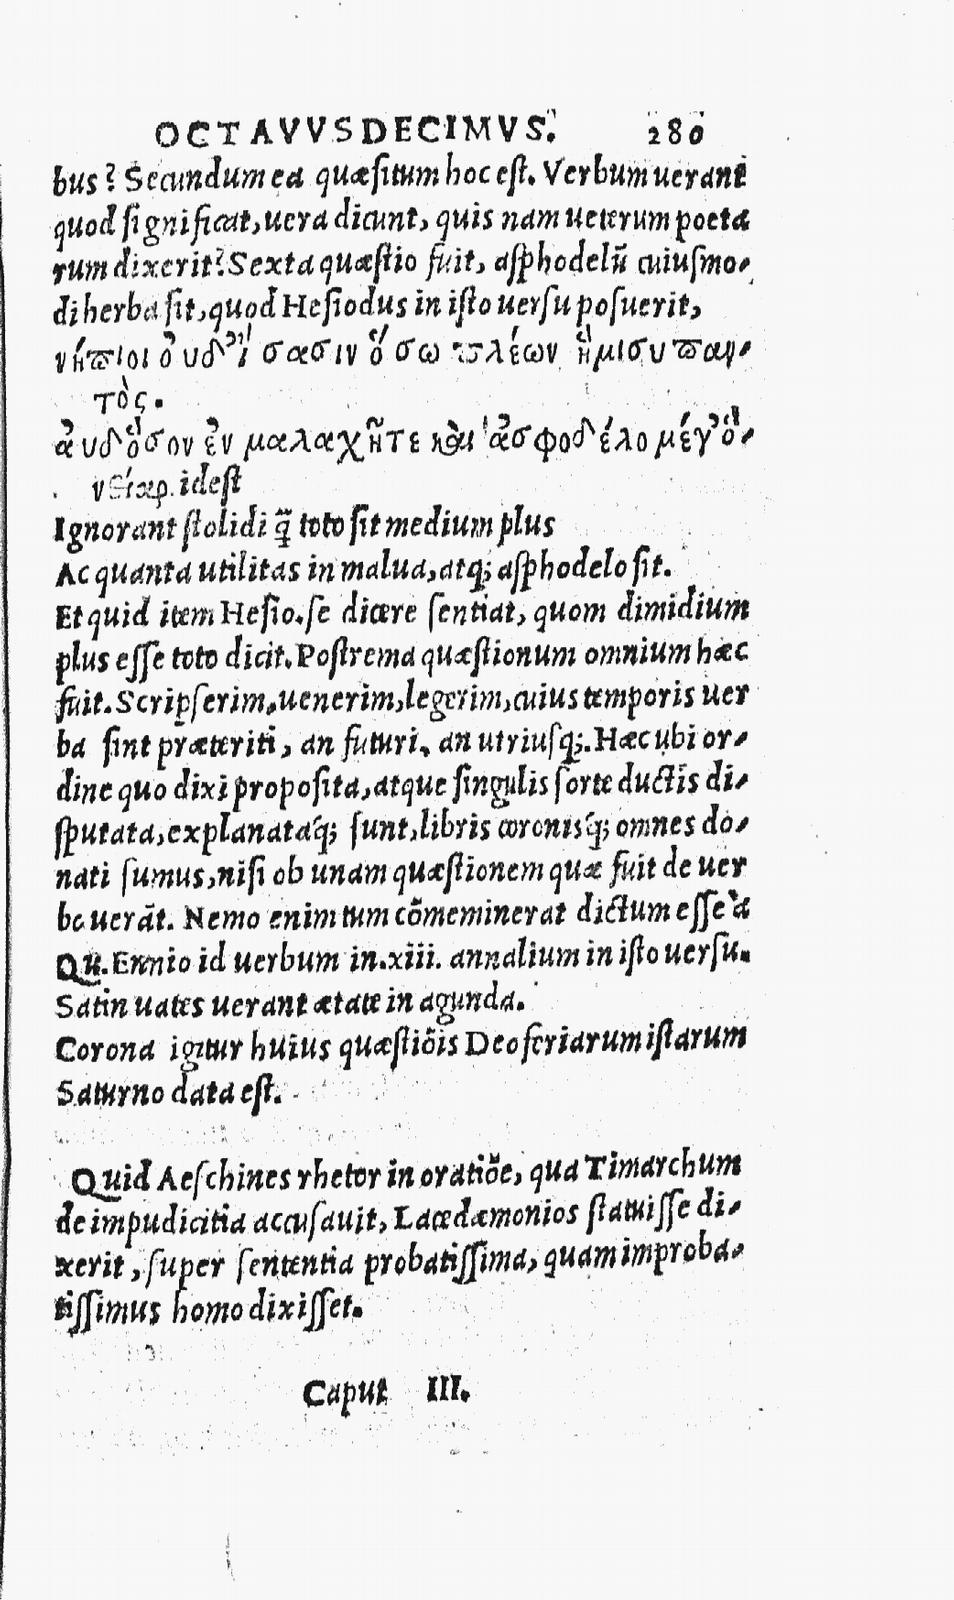 OCTAVVSDECIMVS. 280
bus? Secundum ea quæſitum hoc eſt. Verbum uerant
quod ſignificat, uera dicunt, quis nam ueterum poeta
rum dixerit? Sexta quæſtio fuit, aſphodelū cuiuſmo-
di herba ſit, quod Heſiodus in iſto uerſu poſuerit,
νήπιοι ὀυδ' ἴσασιν ὅσω πλέων ἥμισυ παν-
τὸς.
ὀυδ' ὅσον ἐν μαλαχῆτε καὶ ἀσφοδέλο μέγ' ὄ-
νειαρ. ideſt
Ignorant ſtolidi q̃ toto ſit medium plus
Ac quanta utilitas in malua, atq; aſphodelo ſit.
Et quid item Heſio. ſe dicere ſentiat, quom dimidium
plus eſſe toto dicit. Poſtrema quæſtionum omnium hæc
fuit. Scripſerim, uenerim, legerim, cuius temporis uer
ba ſint præteriti, an futuri, an utriuſq;. Hæc ubi or-
dine quo dixi propoſita, atque ſingulis ſorte ductis di-
ſputata, explanataq́; ſunt, libris coronisq́; omnes do-
nati ſumus, niſi ob unam quæſtionem quæ fuit de uer
bo uerāt. Nemo enim tum cōmeminerat dictum eſſe à
Qu. Ennio id uerbum in .xiii. annalium in iſto uerſu.
Satin uates uerant ætate in agunda.
Corona igitur huius quæſtiōis Deo feriarum iſtarum
Saturno data eſt.
Quid Aeſchines rhetor in oratiōe, qua Timarchum
de impudicitia accuſauit, Lacedæmonios ſtatuiſſe di-
xerit, ſuper ſententia probatiſſima, quam improba-
tiſſimus homo dixiſſet.
Caput III.